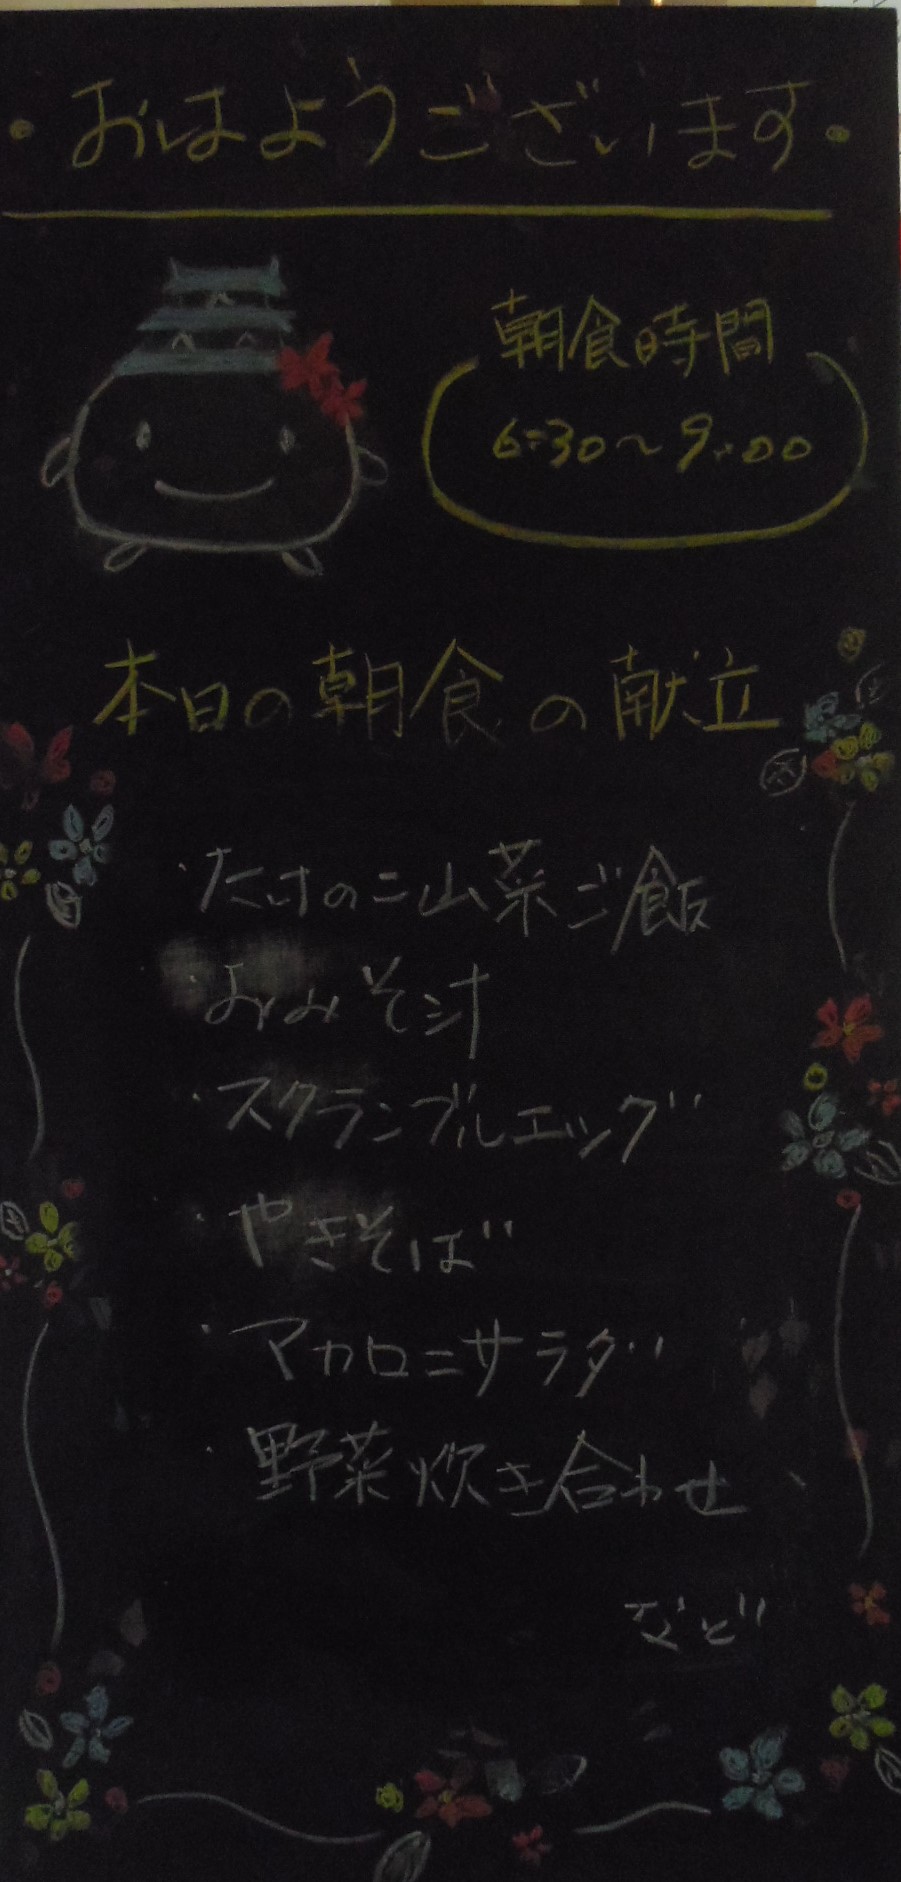 ・おはようございます・
朝食時間
6:30〜9:00
本日の朝食の献立
・たけのこ山菜ご飯
・おみそ汁
・スクランブルエッグ
・やきそば
・マカロニサラダ
・野菜炊き合わせ
など